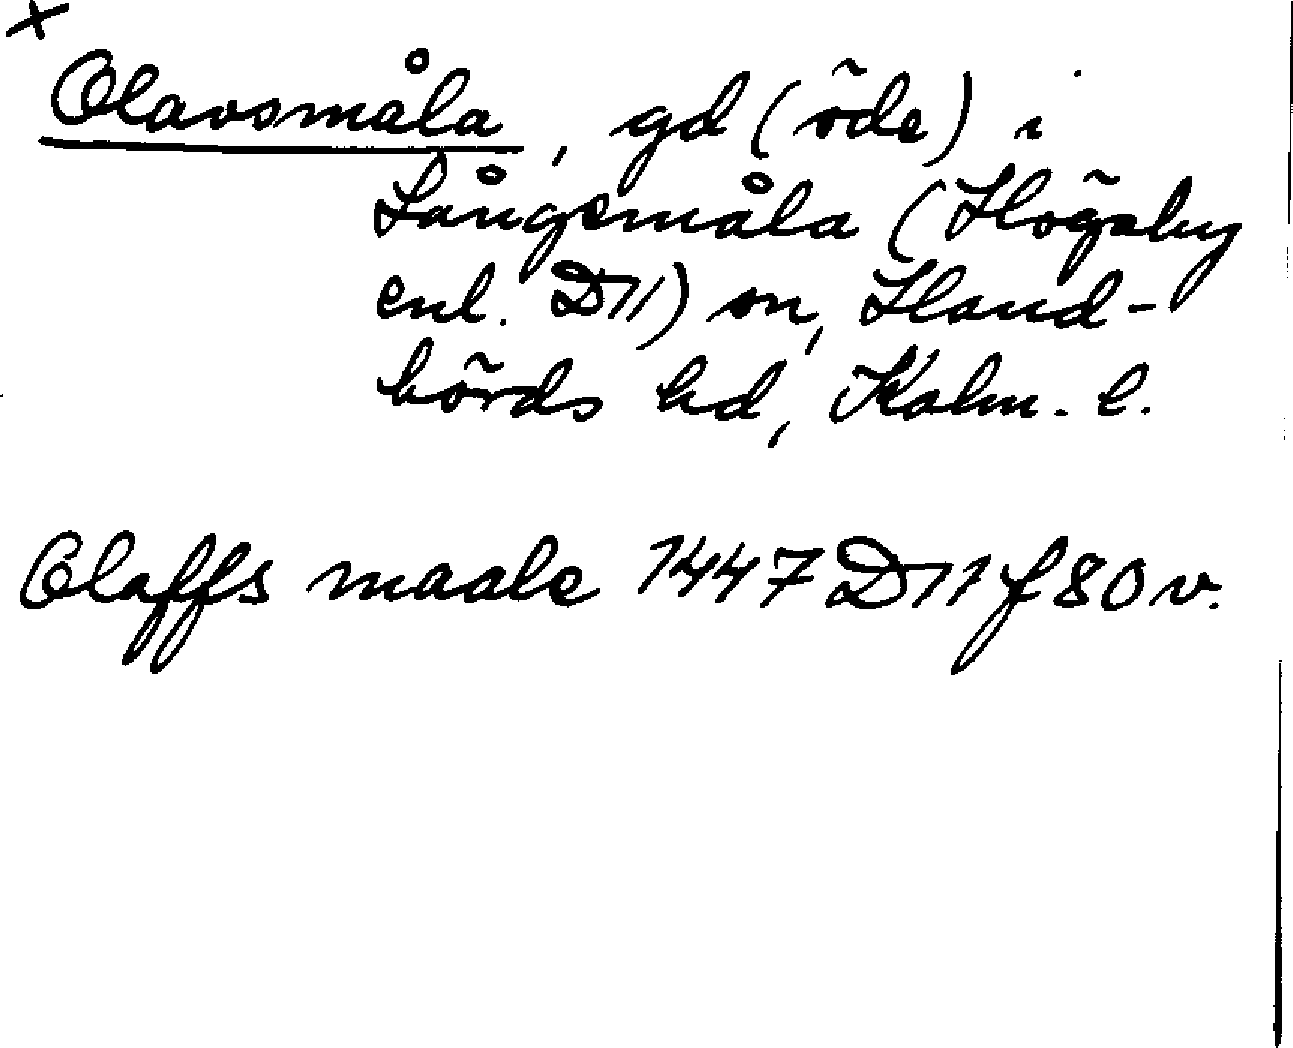 ×
Olavsmåla, gd (öde) i
Långemåla (Högsby
enl. D11) sn, Hand-
börds hd, Kalm. l.
Olaffs maale 1447 D11 f 80 v.